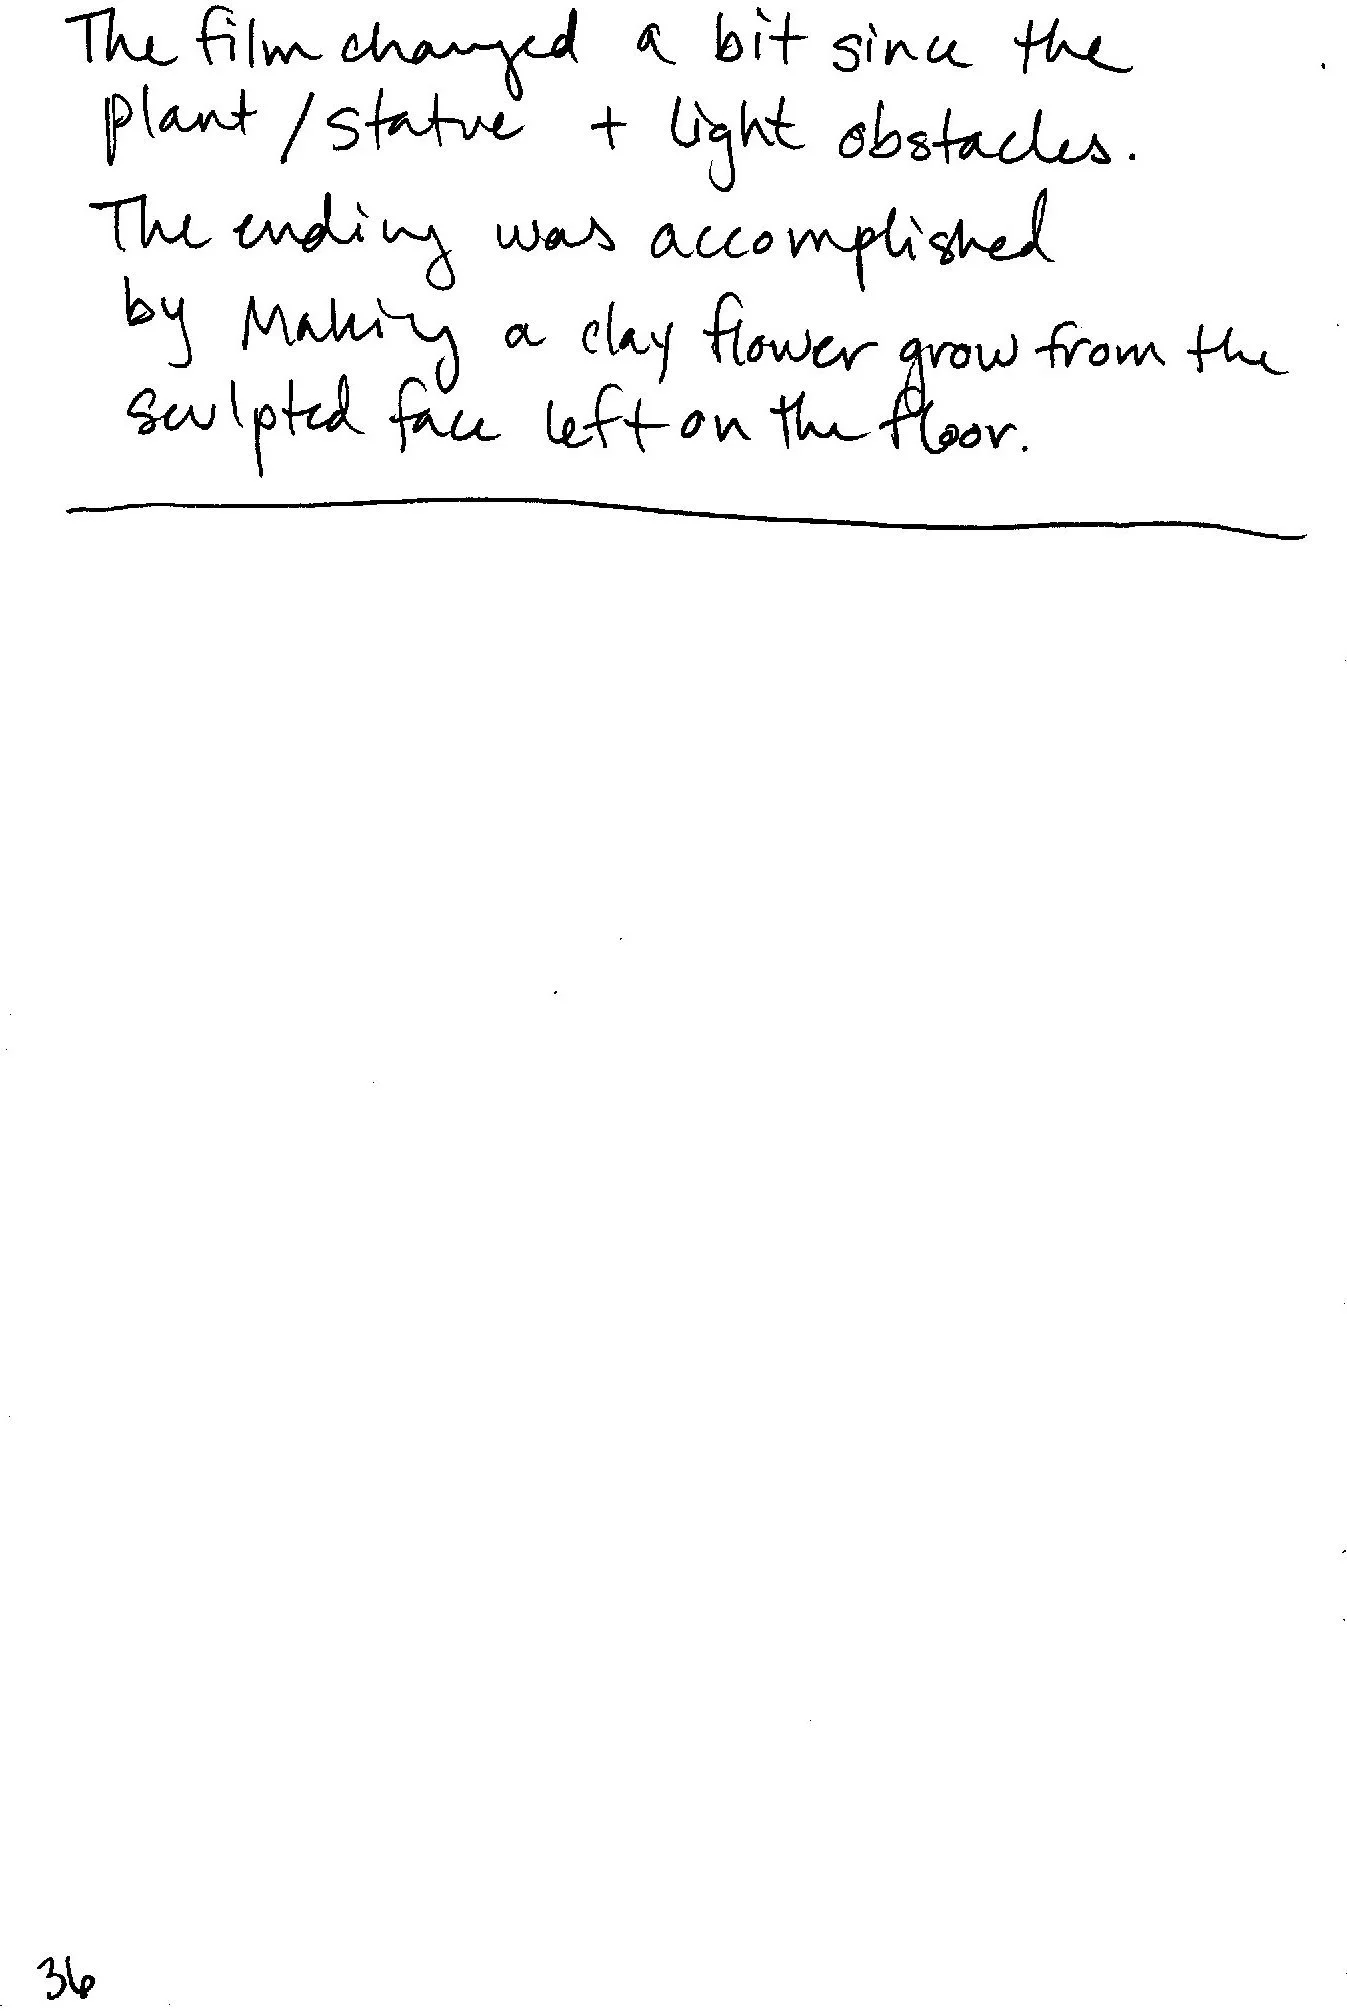 The film changed a bit since the
plant / statue + light obstacles.
The ending was accomplished
by Making a clay flower grow from the
sculpted face left on the floor.
36